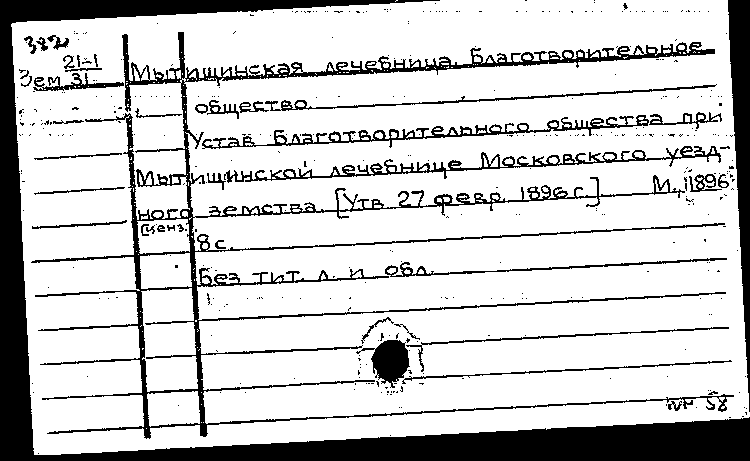 382
21-1
Зем 31
Мытищинская лечебница. Благотворительное
общество.
Устав Благотворительного общества при
Мытищинской лечебнице Московского уезд-
ного земства. [Утв. 27 февр. 1896 г.]. М., 1896
[ценз.
8 с.
Без тит. л. и обл.
58